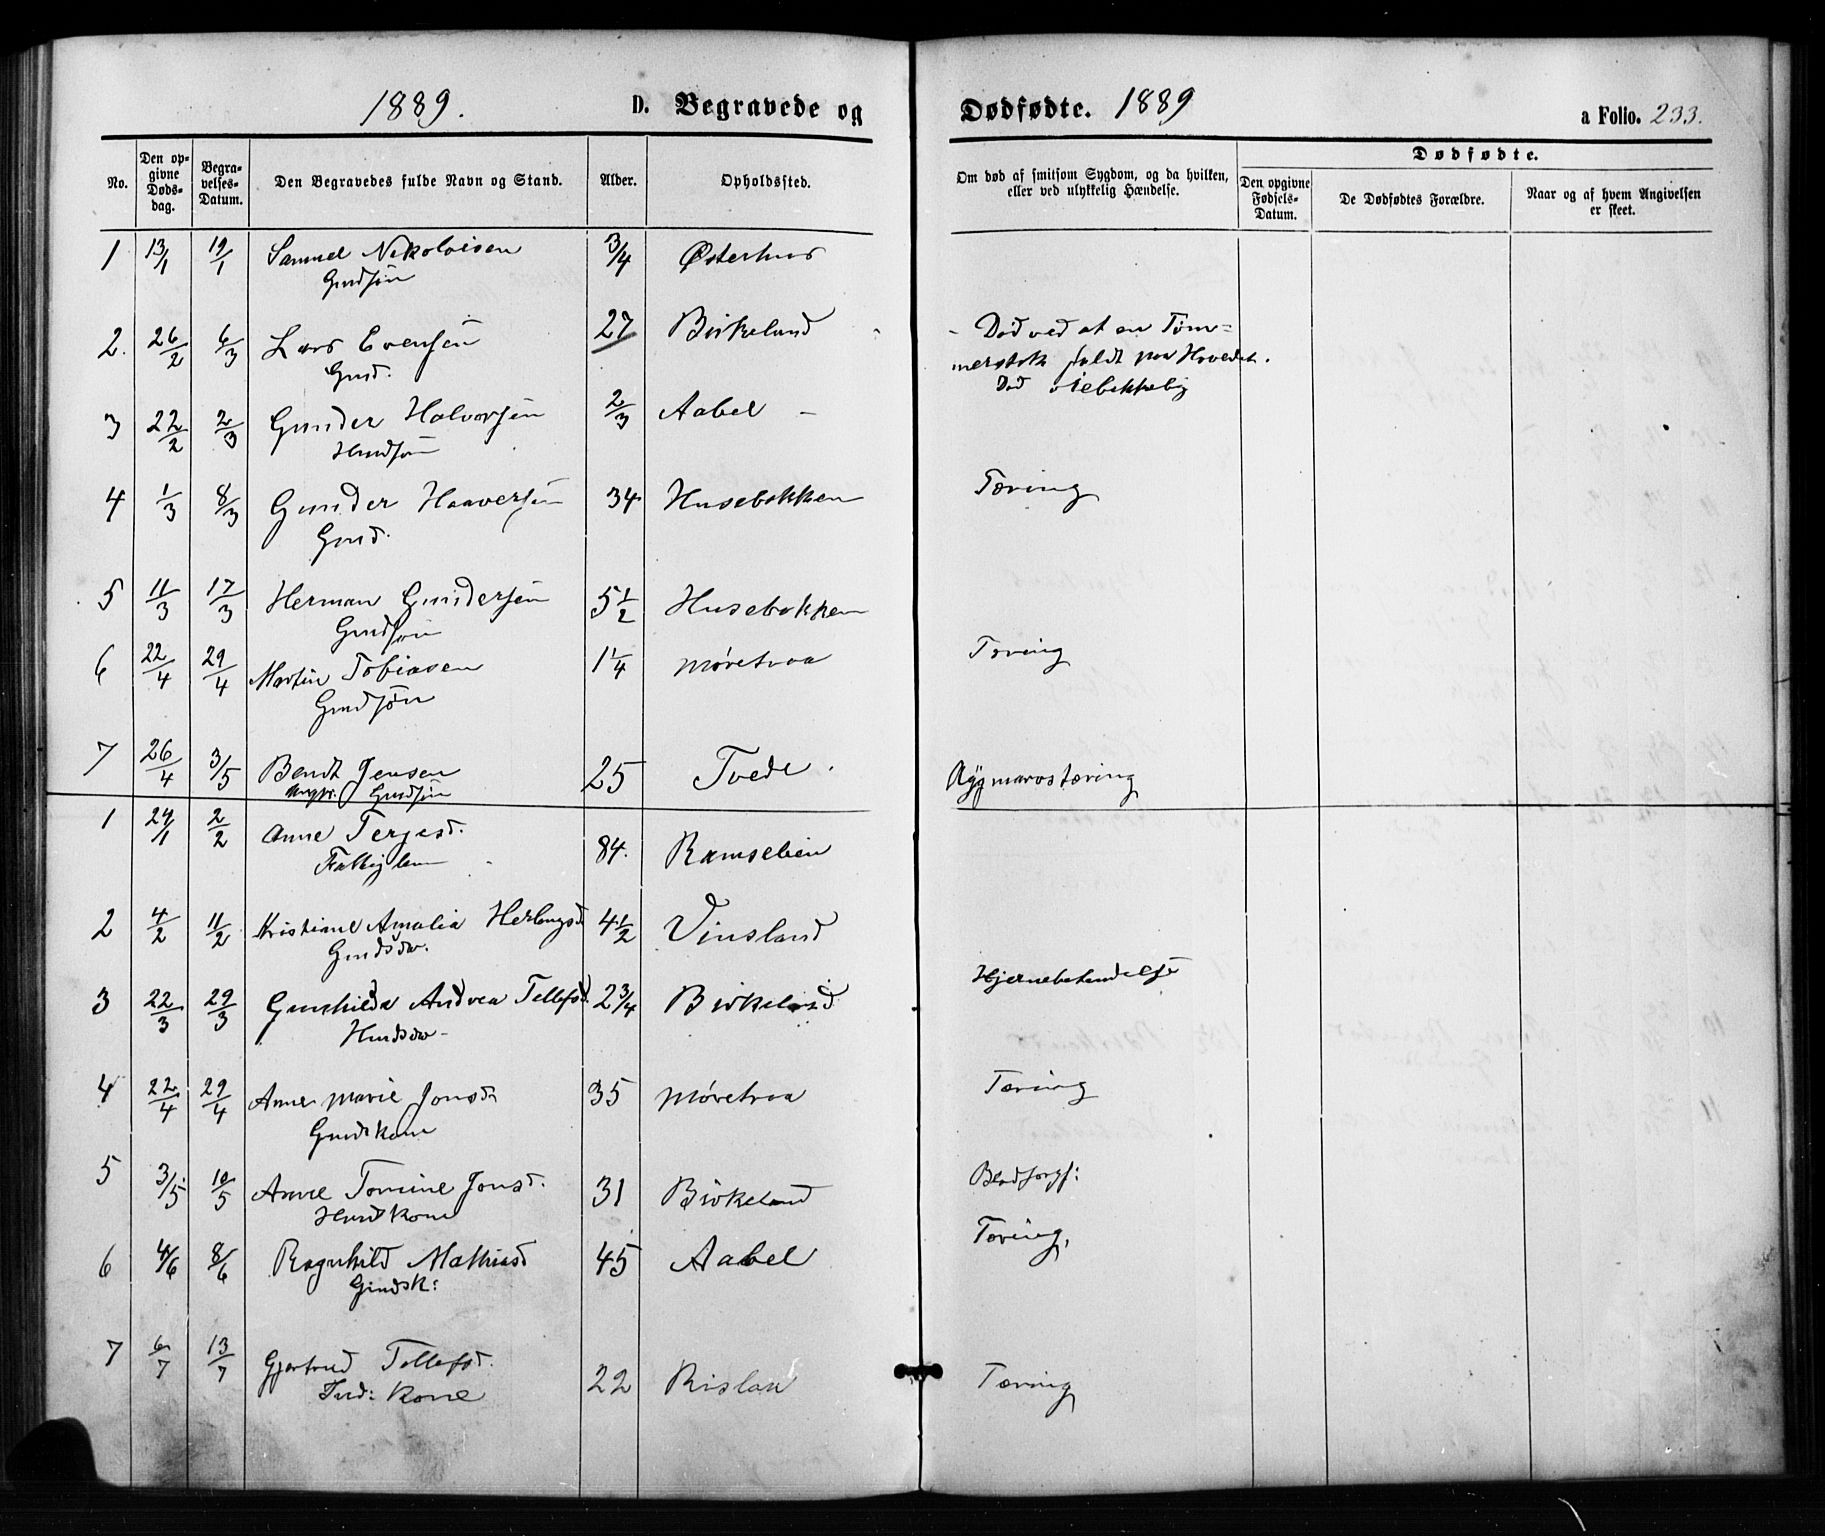 1889. D. Begravede og Dødfødte. 1889 a Folio. 233.
No. Den opgivne Dødsdag. Begravelses-Datum. Den Begravedes fulde Navn og Stand. Alder. Opholdssted. Om død af smitsom Sygdom, og da hvilken, eller ved ulykkelig Hændelse. Dødfødte. Den opgivne Fødsels-Datum. De Dødfødtes Forældre. Naar og af hvem Angivelsen er skeet.
1 13/1 19/1 Samuel Nikolaisen 3/4 Østerhus
Gmdsøn
2. 26/2 6/3 Lars Evensen 27 Birkeland - Død ved at en Tøm=
Gmd. merstok faldt paa Hovedet.
Død øiebikkelig
3 22/2 2/3 Gunder Halvorsen 2/3 Aabel -
Hmdsøn
4 1/3 8/3 Gunder Haaversen 34 Husebakken Tæring
Gmd.
5 11/3 17/3 Herman Gundersen 5 1/2 Husebakken
Gmdsøn
6 22/4 29/4 Martin Tobiasen 1 1/4 Møretraa Tæring
Gmdsøn
7 26/4 3/5 Bendt Jensen 25 Tvede. Rygmarvstæring
Ungkr. Gmdsøn
1 24/1 2/2 Anne Terjesd. 84. Ramselien
Fattiglem
2 4/2 11/2 Kristiane Amalia 4 1/2 Vinsland
Gmdsdtr.
3 22/3 29/3 Gunhilda Andrea Tellefsd. 2 3/4 Birkeland Hjernebetendelse
Hmdsdtr
4 22/4 29/4 Anne Marie Jonsd 35 Møretraa Tæring
Gmdskone
5 3/5 10/5 Anne Tomine Jonsd. 31 Birkeland
Hmdskone
6 4/6 8/6 Ragnhild Mathiasd 45 Aabel Tæring,
Gmdsk:
7 6/7 13/7 Gjertrud Tellefsd. 22 Rislaa Tæring
Ind: Kone